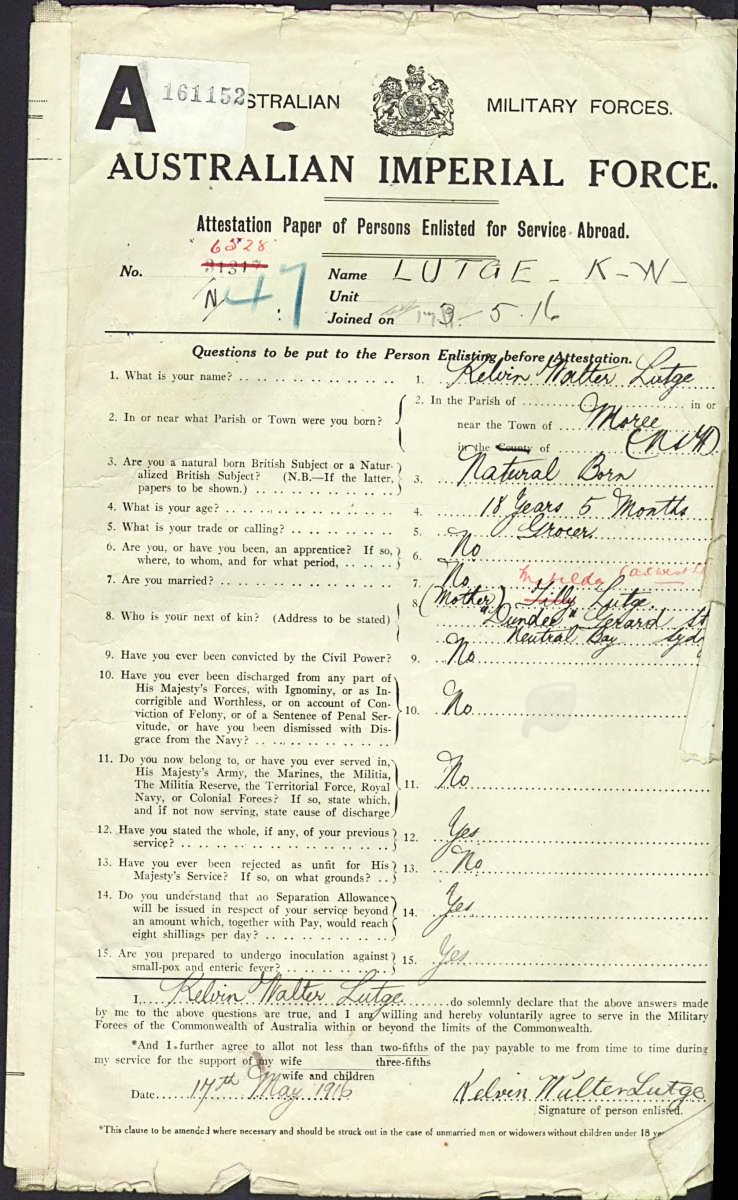 A 161152
AUSTRALIAN MILITARY FORCES.
AUSTRALIAN IMPERIAL FORCE.
Attestation Paper of Persons Enlisted for Service Abroad.
6528
No. 31317 Name LUTGE - K-W-
N 47 Unit
Joined on 3-5-16
Questions to be put to the Person Enlisting before Attestation.
1. What is your name? 1. Kelvin Walter Lutge
2. In or near what Parish or Town were you born? 2. In the Parish of in or
near the Town of Moree
in the County of (NSW)
3. Are you a natural born British Subject or a Natur-
alized British Subject? (N.B.—If the latter, 3. Natural Born
papers to be shown.)
4. What is your age? 4. 18 Years 5 Months
5. What is your trade or calling? 5. Grocer
6. Are you, or have you been, an apprentice? If so, 6. No
where, to whom, and for what period,
7. Are you married? 7. No
Matilda
8. Who is your next of kin? (Address to be stated) 8. (Mother) Tilly Lutge
"Dundee" Gerard St
Neutral Bay Syd
9. Have you ever been convicted by the Civil Power? 9. No
10. Have you ever been discharged from any part of
His Majesty's Forces, with Ignominy, or as In-
corrigible and Worthless, or on account of Con-
viction of Felony, or of a Sentence of Penal Ser- 10. No
vitude, or have you been dismissed with Dis-
grace from the Navy?
11. Do you now belong to, or have you ever served in,
His Majesty's Army, the Marines, the Militia,
The Militia Reserve, the Territorial Force, Royal 11. No
Navy, or Colonial Forces? If so, state which,
and if not now serving, state cause of discharge
12. Have you stated the whole, if any, of your previous 12. Yes
service?
13. Have you ever been rejected as unfit for His 13. No
Majesty's Service? If so, on what grounds?
14. Do you understand that no Separation Allowance
will be issued in respect of your service beyond 14. Yes
an amount which, together with Pay, would reach
eight shillings per day?
15. Are you prepared to undergo inoculation against 15. Yes
small-pox and enteric fever?
I, Kelvin Walter Lutge do solemnly declare that the above answers made
by me to the above questions are true, and I am willing and hereby voluntarily agree to serve in the Military
Forces of the Commonwealth of Australia within or beyond the limits of the Commonwealth.
*And I further agree to allot not less than two-fifths of the pay payable to me from time to time during
three-fifths
my service for the support of my wife
wife and children
Date 17th May 1916 Kelvin Walter Lutge
Signature of person enlisted.
*This clause to be amended where necessary and should be struck out in the case of unmarried men or widowers without children under 18